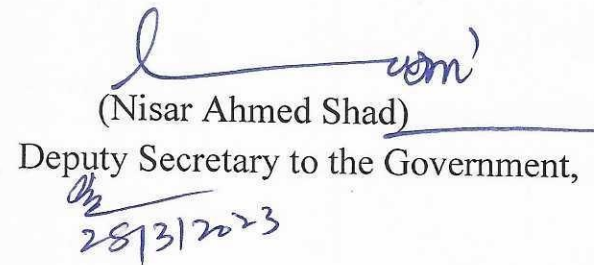 (Nisar Ahmed Shad)
Deputy Secretary to the Government,
28/3/2023